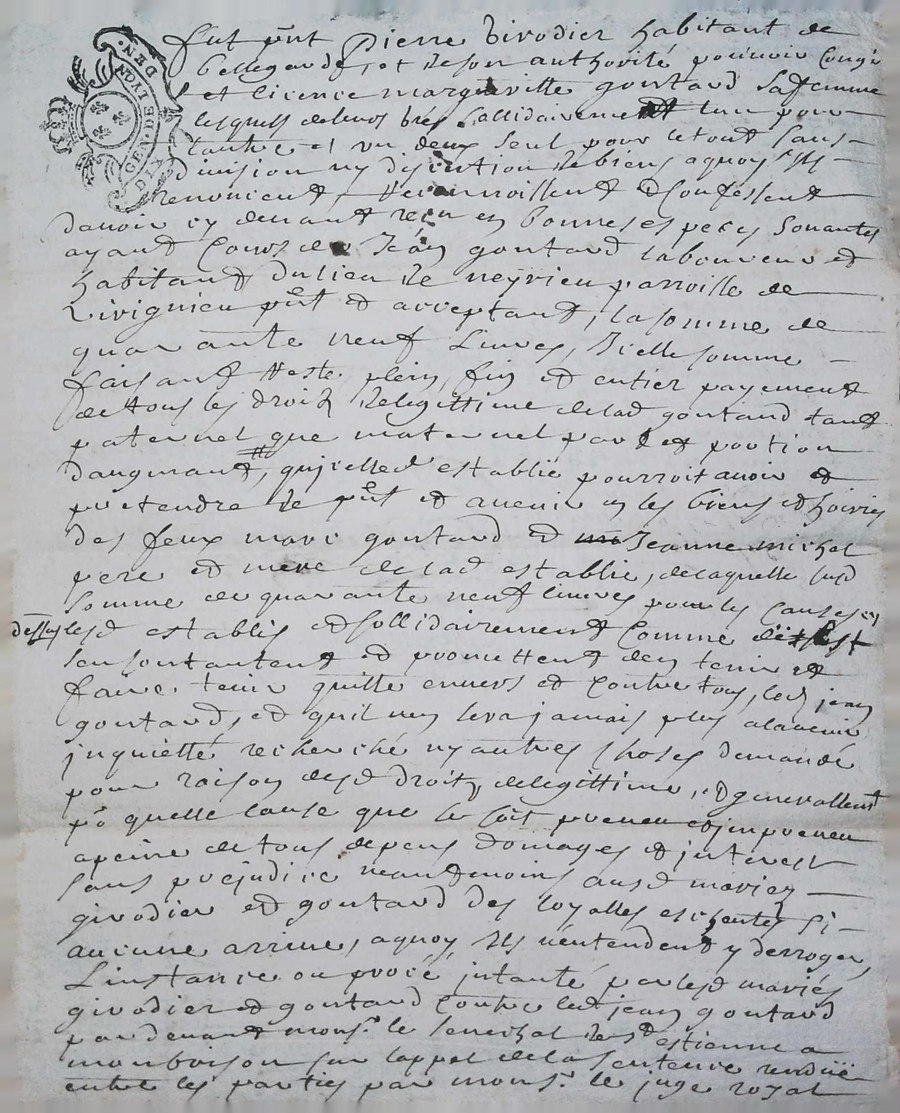 GEN. DE LYON
DIX DEN.
fut pñt Pierre Girodier habitant de
bellegarde, et de son authorité pouvoir Congé
et licence margueritte goutard sa femme
lesquels de leurs grés sollidairement lun pour
lautre et un deux seul pour le tout sans
division ny discution de biens aquoy ils
renoncent, Reconnoissent et Confessent
davoir cy devant reçu en bonnes especes sonantes
ayand Cours de Jean goutard laboureur et
habitand du lieu de neyrieu parroisse de
Rivignieu pñt et acceptand, la somme de
quarante neuf Livres, Jcelle somme
faisand Reste, plein, fin et entier payement
de tous les droitz de legittime de lad goutard tand
paternel que maternel part et portion
daugmand, qu'icelle establie pourroit avoir et
pretendre de pñt et avenir en les biens et hoiries
des feux marc goutard et Jeanne michel
pere et mere de lad establie, de laquelle susd
somme de quarante neuf livres pour les causes cy
dessus lesd establis et sollidairement Comme
sen contantent et promettent den tenir et
faire tenir quitte envers et Contre tous, led jean
goutard, et quil nen sera jamais plus alavenir
jnquietté recherché ny autres choses demandé
pour raison desd droitz de legittime, et generallement
po quelle cause que ce soit preveu et jmpreveu
apeine de tous depens domages et jnterest
sans prejudice neantmoins ausd mariez
girodier et goutard des loyalles escheutes si
aucune arrive, aquoy ils nentendent y derroger,
Linstance ou procé jntanté par lesd mariés
girodier et goutard Contre led jean goutard
pardevant monsr. le senechal de st estienne a
monbrison sur lappel de la sentence renduë
entre les parties par monsr. le juge royal